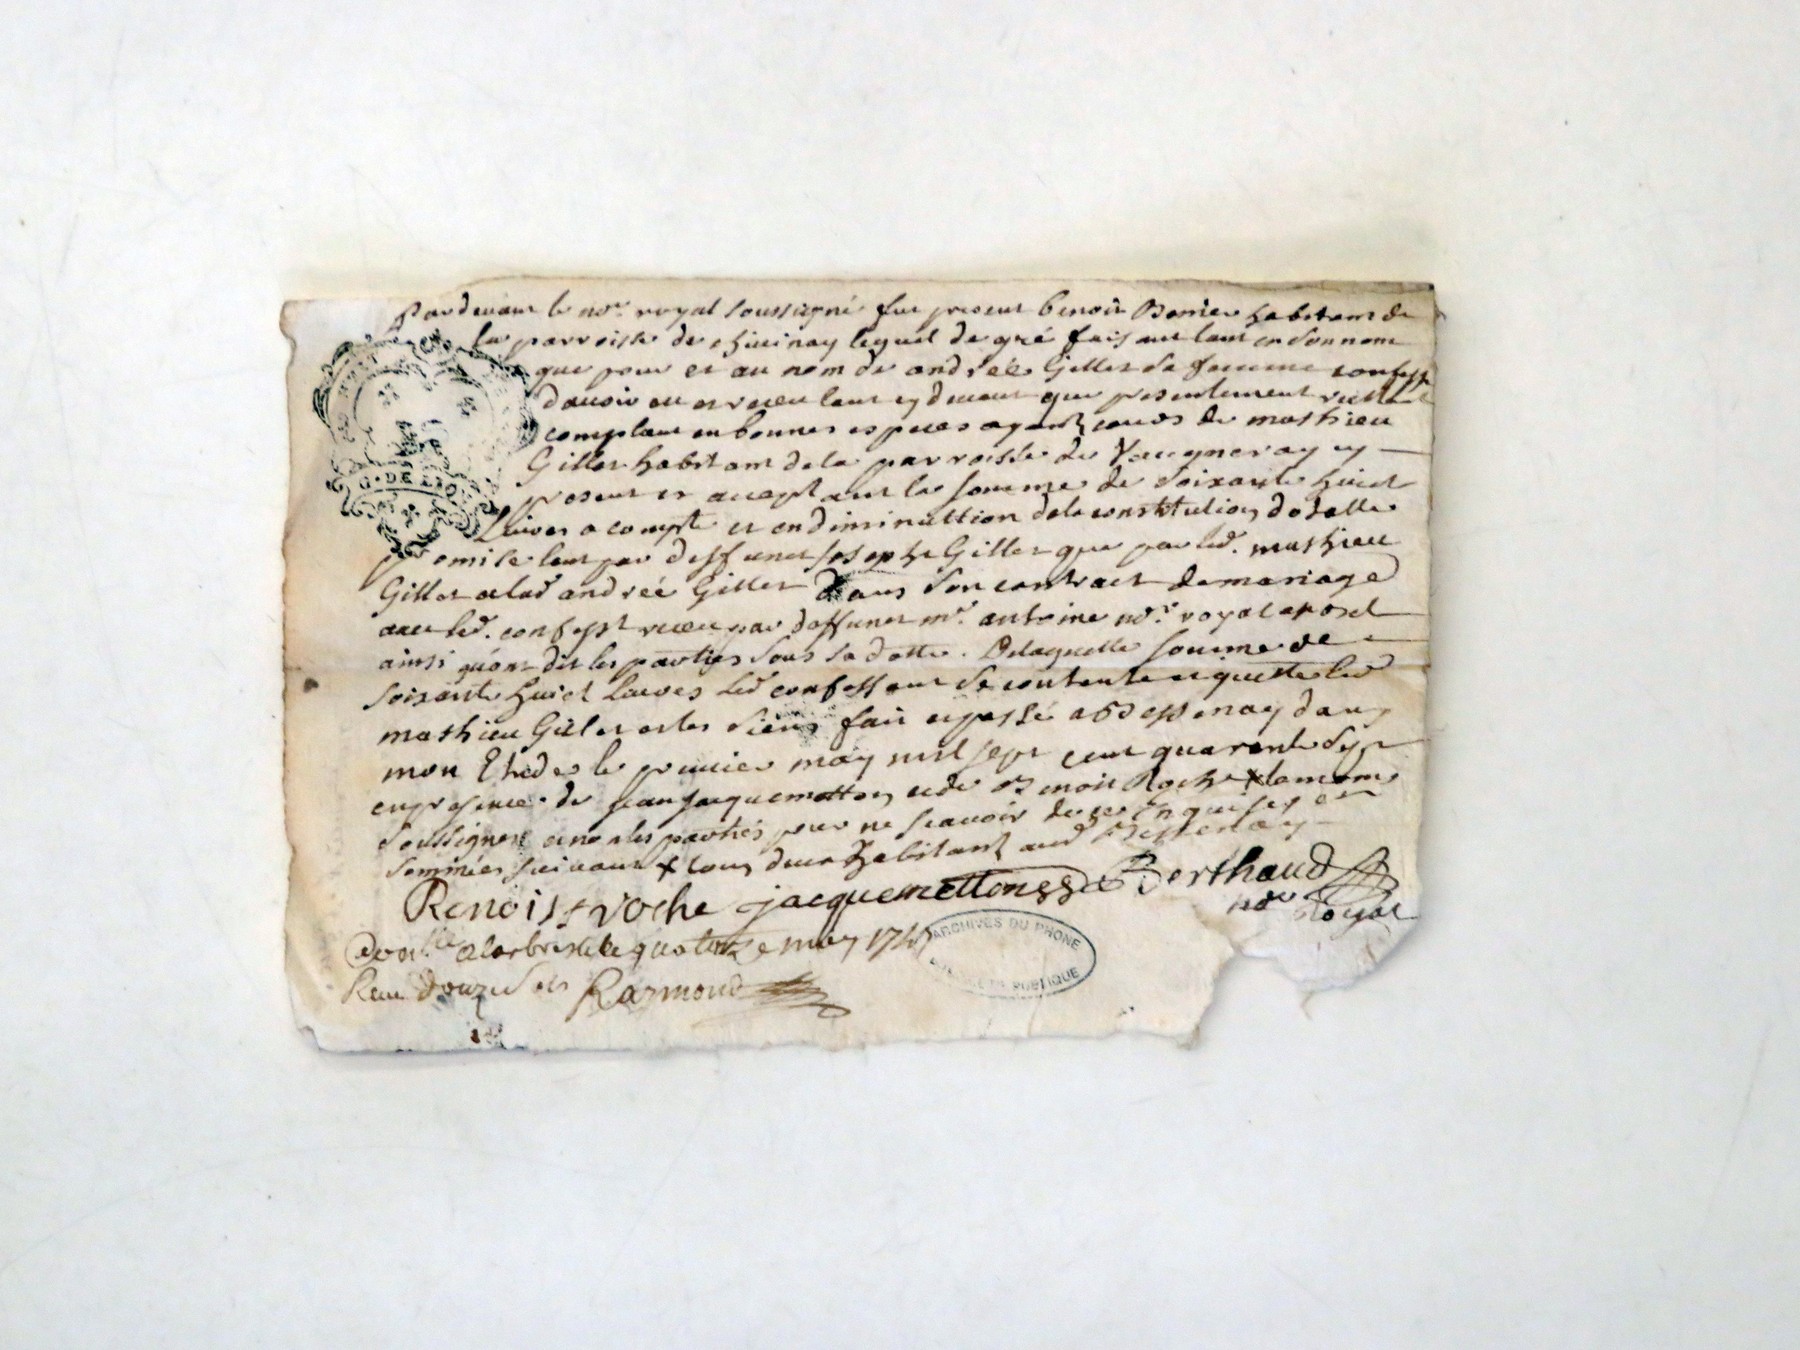 Pardevant le no.re royal soussigné fut present benoit Bonier habitant de
la parroisse de chivinay lequel de gré faisant tant en son nom
que pour et au nom de andréé Gillet sa femme confesse
davoir eu et receu tant cy devant que presentement
comptant en bonnes especes ayant cours de mathieu
Gillet habitant de la parroisse de Vaugneray cy
present et acceptant la somme de soixante huict
Livres a compte et en diminuttion de la constitution dotalle
promise tant par deffunct joseph Gillet que par led. mathieu
Gillet a lad andréé Gillet dans son contract de mariage
avec led. confesst receu par deffunct mr. antoine no.re royal
ainsi qu'ont dit les parties sous sa datte. De laquelle somme de
soixante huict Livres led confessant se contente et quitte led
mathieu Gillet et les siens fait et passé a Bessenay dans
mon Etude le premier may mil sept cent quarante sept
en presence de jean jacquemetton et de Benoit Roche x
soussignes et non les parties pour ne scavoir de ce Enquises et
sommées suivant x tous deux habitant aud Bessenay
Benoist roche jacquemetton Berthaud
no.re Royal
Con.llé a larbresle le quatorze may 1747
Receu douze sols Raymond
G. DE LYO
ARCHIVES DU RHONE